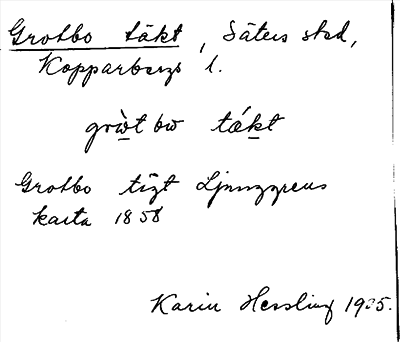 Grotbo täkt, Säters stad,
Kopparbergs l.
grò̱t bω tá̱kt
Grotbo tägt Ljunggrens
karta 1858
Karin Hessling 1935.